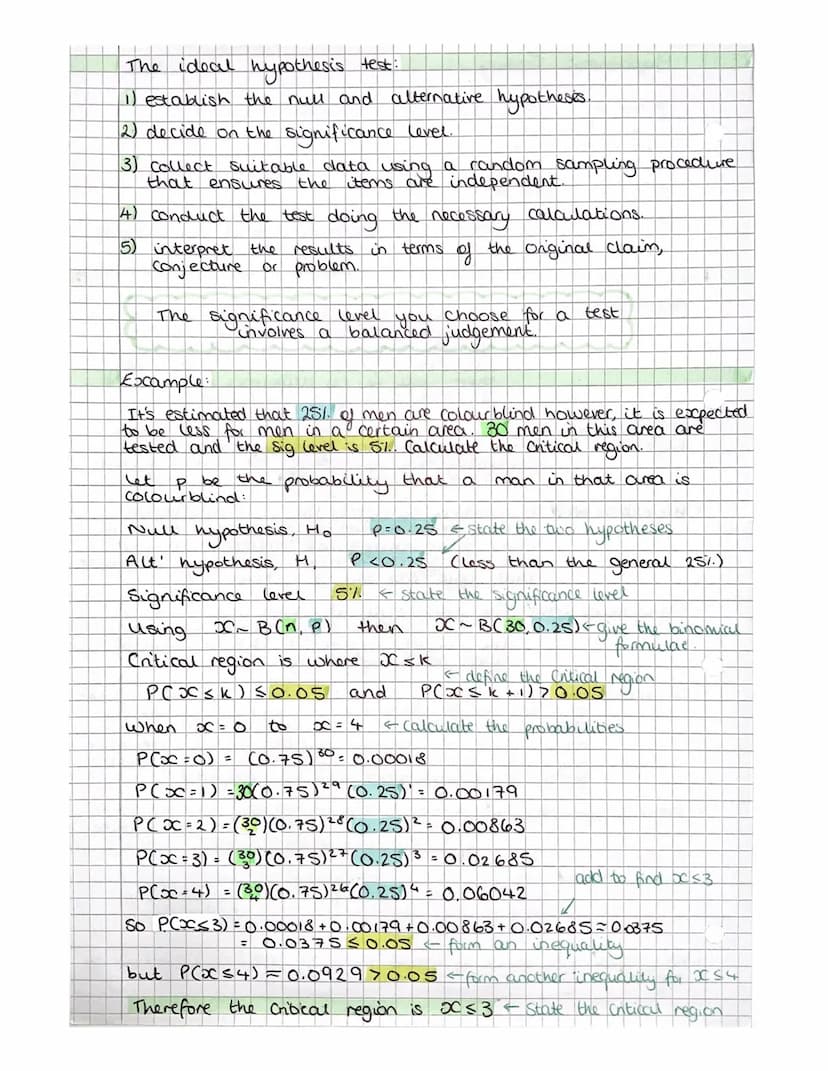 The ideal hypothesis test:
1) establish the null and alternative hypotheses.
2) decide on the significance level.
3) collect suitable data using a random sampling procedure
that ensures the items are independent.
4) conduct the test doing the necessary calculations.
5) interpret the results in terms of the original claim,
conjecture or problem.
The significance level you choose for a test
involves a balanced judgement.
Example:
It's estimated that 25% of men are colourblind however, it is expected
to be less for men in a certain area. 30 men in this area are
tested and the sig level is 5%. Calculate the critical region.
Let p be the probability that a man in that area is
colourblind:
Null hypothesis, H₀ P=0.25 ← state the two hypotheses
Alt' hypothesis, H₁ P<0.25 (less than the general 25%)
Significance level 5% ← state the significance level
Using x~B(n, p) then x~B(30, 0.25) ← give the binomial
formulae.
Critical region is where x≤k
← define the critical region
P(x≤k) ≤ 0.05 and P(x≤k+1) > 0.05
When x=0 to x=4 ← calculate the probabilities
P(x=0) = (0.75)³⁰ = 0.00018
P(x=1) = 30(0.75)²⁹(0.25)¹ = 0.00179
P(x=2) = (30 2)(0.75)²⁸(0.25)² = 0.00863
P(x=3) = (30 3)(0.75)²⁷(0.25)³ = 0.02685
add to find x≤3
P(x=4) = (30 4)(0.75)²⁶(0.25)⁴ = 0.06042
So P(x≤3) = 0.00018+0.00179+0.00863+0.02685≈0.0375
= 0.0375 ≤ 0.05 ← form an inequality
but P(x≤4) ≈ 0.0929 > 0.05 ← form another inequality for x≤4
Therefore the critical region is x≤3 ← state the critical region